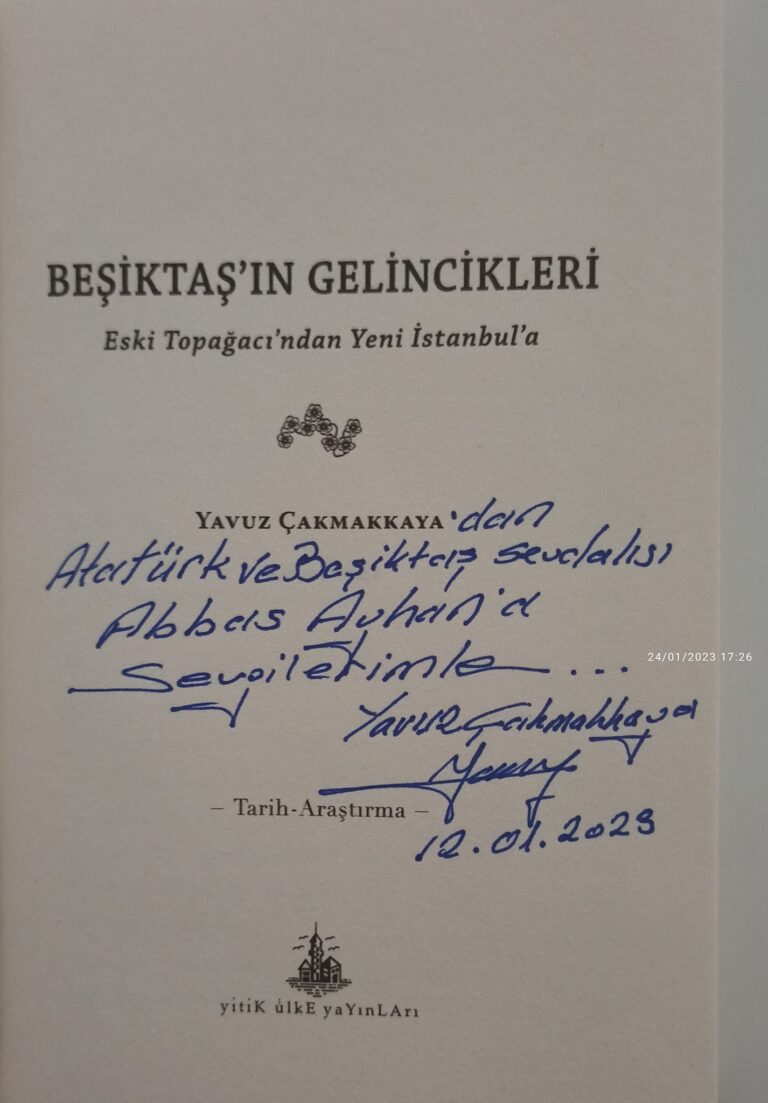 BEŞİKTAŞ'IN GELİNCİKLERİ
Eski Topağacı'ndan Yeni İstanbul'a
YAVUZ ÇAKMAKKAYA'dan
Atatürk ve Beşiktaş sevdalısı
Abbas Ayhan'a
Sevgilerimle...
24/01/2023 17:26
Yavuz Çakmakkaya
– Tarih-Araştırma –
12.01.2023
yitiK ülkE yaYınLArı